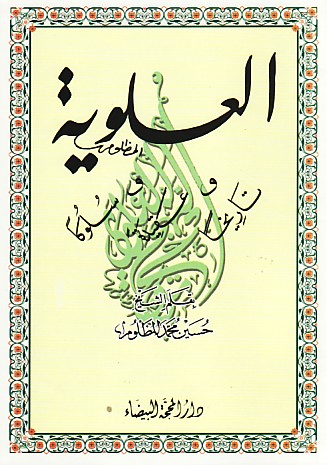 العلوية
المظلومة
تاريخًا و عقيدة و سلوكًا
بقلم الشيخ
حسين محمد المظلوم
دار المحجة البيضاء